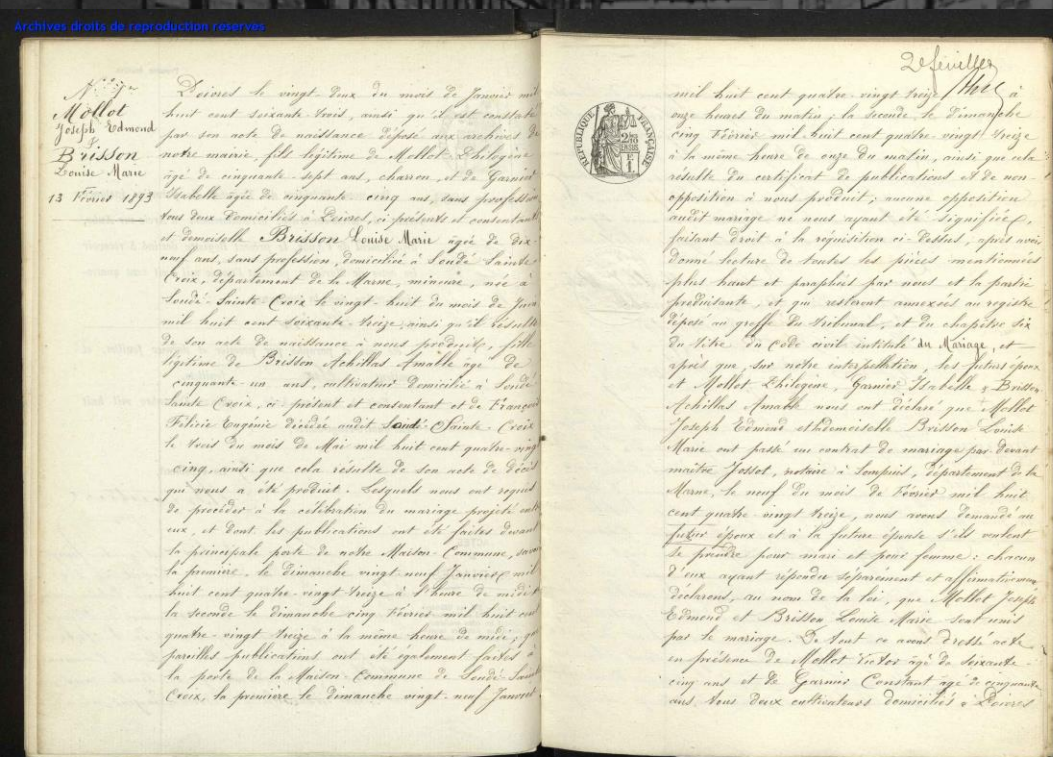 Archives droits de reproduction reserves
N° 1er
Mollot
Joseph Edmond
&
Brisson
Louise Marie
13 Février 1893
Poivres le vingt deux du mois de Janvier mil
huit cent soixante trois, ainsi qu'il est constaté
par son acte de naissance déposé aux archives de
notre mairie, fils légitime de Mollot Philogène
âgé de cinquante-sept ans, charron, et de Garnier
Isabelle âgée de cinquante-cinq ans, sans profession
tous deux domiciliés à Poivres, ci présents et consentants
et demoiselle Brisson Louise Marie âgée de dix-
neuf ans, sans profession, domiciliée à Soudé Sainte
Croix, département de la Marne, mineure, née à
Soudé-Sainte-Croix le vingt-huit du mois de
mil huit cent soixante-treize, ainsi qu'il résulte
de son acte de naissance à nous produit, fille
légitime de Brisson Achillas Amable âgé de
cinquante-un ans, cultivateur domicilié à Soudé
Sainte Croix, ci-présent et consentant et de François
Félicie Eugénie décédée audit Soudé Sainte-Croix
le trois du mois de Mai mil huit cent quatre-vingt
cinq, ainsi que cela résulte de son acte de décès
qui nous a été produit. Lesquels nous ont requis
de procéder à la célébration du mariage projeté entre
eux, et dont les publications ont été faites devant
la principale porte de notre Maison-Commune, savoir
la première, le dimanche vingt-neuf Janvier mil
huit cent quatre-vingt treize à l'heure de midi et
la seconde le dimanche cinq Février mil huit cent
quatre-vingt treize à la même heure de midi; que
pareilles publications ont été également faites à
la porte de la Maison-Commune de Soudé-Sainte
Croix, la première le dimanche vingt-neuf Janvier
2e feuillet
RÉPUBLIQUE FRANÇAISE
mil huit cent quatre-vingt treize à
onze heures du matin; la seconde, le dimanche
cinq Février mil huit cent quatre-vingt treize
à la même heure de onze du matin, ainsi que cela
résulte du certificat de publications et de non-
opposition à nous produit; aucune opposition
audit mariage ne nous ayant été signifiée,
faisant droit à la réquisition ci-dessus, après avoir
donné lecture de toutes les pièces mentionnées
plus haut et paraphées par nous et la partie
produisante, et qui resteront annexées au registre
déposé au greffe du tribunal, et du chapitre six
du titre du Code civil intitulé du Mariage, et
après que, sur notre interpellation, les futurs époux
et Mollot Philogène, Garnier Isabelle & Brisson
Achillas Amable nous ont déclaré que Mollot
Joseph Edmond et demoiselle Brisson Louise
Marie ont passé un contrat de mariage par devant
maître Jossot, notaire à Sompuis, département de la
Marne, le neuf du mois de Février mil huit
cent quatre-vingt treize, nous avons demandé au
futur époux et à la future épouse s'ils veulent
se prendre pour mari et pour femme: chacun
d'eux ayant répondu séparément et affirmativement
déclarons, au nom de la loi, que Mollot Joseph
Edmond et Brisson Louise Marie sont unis
par le mariage. De tout ce avons dressé acte
en présence de Mollot Victor âgé de soixante-
cinq ans et de Garnier Constant âgé de cinquante
ans, tous deux cultivateurs domiciliés à Poivres